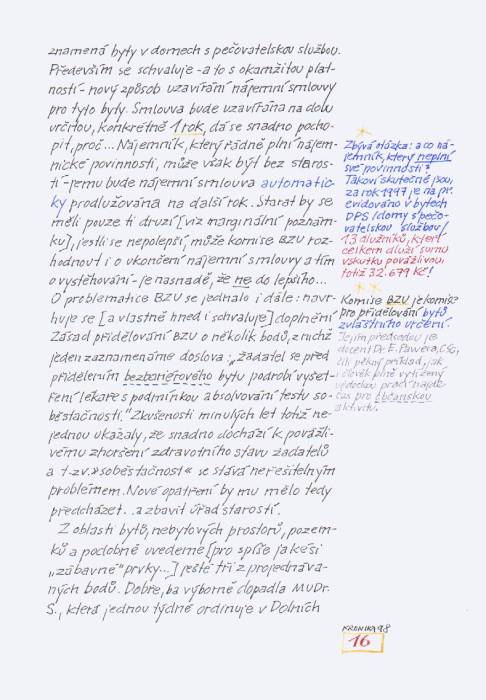 znamená byty v domech s pečovatelskou službou.
Především se schvaluje - a to s okamžitou plat-
ností - nový způsob uzavírání nájemní smlouvy
pro tyto byty. Smlouva bude uzavírána na dobu
určitou, konkrétně 1 rok, dá se snadno pocho-
pit, proč... Nájemník, který řádně plní nájem-
nické povinnosti, může však být bez staros-
tí - jemu bude nájemní smlouva automatic-
ky prodlužována na další rok. Starat by se
měli pouze ti druzí [viz marginální poznám-
ku], jestli se nepolepší, může komise BZU roz-
hodnout i o ukončení nájemní smlouvy a tím
o vystěhování - je nasnadě, že ne do lepšího...
O problematice BZU se jednalo i dále: navr-
huje se [a vlastně hned i schvaluje] doplnění
Zásad přidělování BZU o několik bodů, z nichž
jeden zaznamenáme doslova: „žadatel se před
přidělením bezbariérového bytu podrobí vyšet-
ření lékaře s podmínkou absolvování testu so-
běstačnosti.“ Zkušenosti minulých let totiž ne-
jednou ukázaly, že snadno dochází k povážli-
vému zhoršení zdravotního stavu žadatelů
a t.zv. »soběstačnost« se stává neřešitelným
problémem. Nové opatření by mu mělo tedy
předcházet.. a zbavit úřad starostí.
Z oblasti bytů, nebytových prostorů, pozem-
ků a podobně uvedeme [pro spíše jakési
„zábavné“ prvky...] ještě tři z projednáva-
ných bodů. Dobře, ba výborně dopadla MUDr.
S., která jednou týdně ordinuje v Dolních
Zbývá otázka: a co ná-
jemník, který neplní
své povinnosti?
Takoví skutečně jsou,
za rok 1997 je na př.
evidováno v bytech
DPS (domy s pečo-
vatelskou službou)
13 dlužníků, kteří
celkem dluží sumu
vskutku povážlivou,
totiž 32.679 Kč!
Komise BZU je komise
pro přidělování bytů
zvláštního určení.
Jejím předsedou je
docent Dr. E. Pawera, CSc,
člověk plně vytížený
vědeckou prací najde
čas pro občanskou
aktivitu.
KRONIKA 98
16